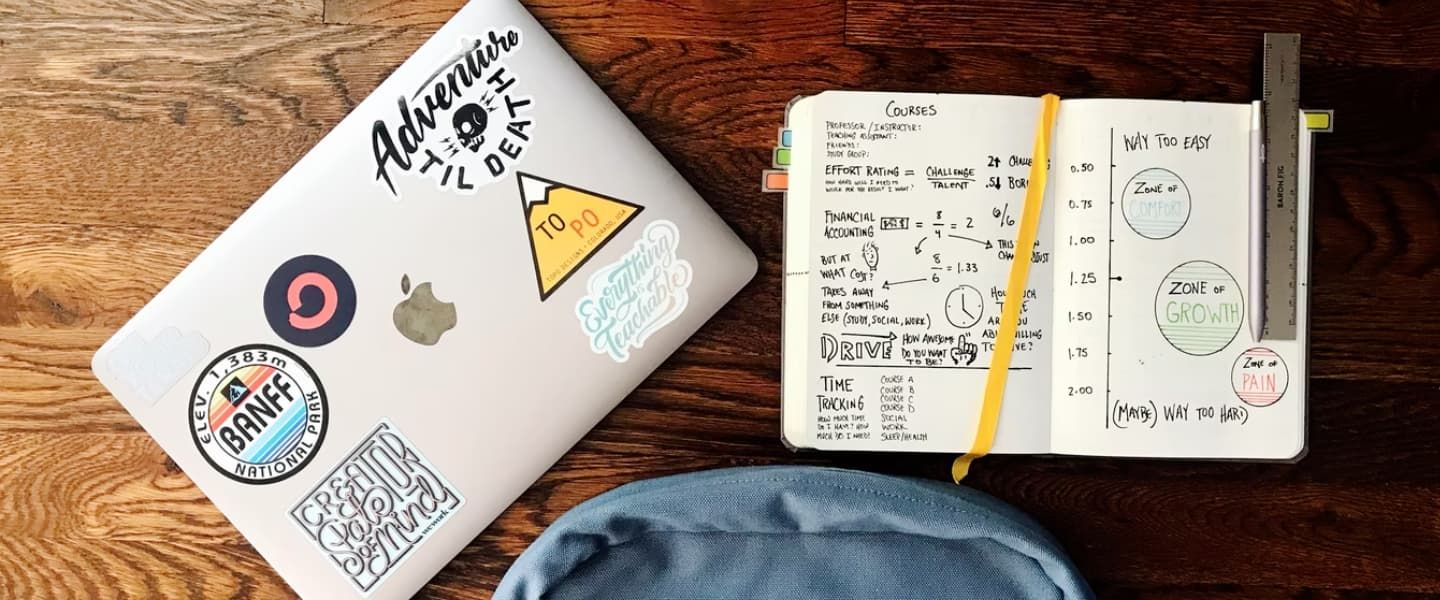 Adventure
'TIL DEATH
TOPO
TOPO DESIGNS • COLORADO, USA
Everything
is
Teachable
ELEV. 1,383m
BANFF
NATIONAL PARK
CREATOR
State
OF Mind
wework
COURSES
PROFESSOR / INSTRUCTOR:
TEACHING ASSISTANT:
FRIENDS:
STUDY GROUP:
EFFORT RATING = CHALLENGE
TALENT
HOW HARD WILL I NEED TO
WORK FOR THE RESULT I WANT?
2↑
.5↓
6/6
FINANCIAL
ACCOUNTING
= 8/4 = 2
8/6 = 1.33
BUT AT
WHAT COST?
TAKES AWAY
FROM SOMETHING
ELSE (STUDY, SOCIAL, WORK)
DRIVE
HOW AWESOME
DO YOU WANT
TO BE?
TIME
TRACKING
HOW MUCH TIME
DO I HAVE? HOW
MUCH DO I NEED?
COURSE A
COURSE B
COURSE C
COURSE D
SOCIAL
WORK
SLEEP/HEALTH
WAY TOO EASY
0.50
0.75
1.00
1.25
1.50
1.75
2.00
ZONE OF
COMFORT
ZONE OF
GROWTH
ZONE OF
PAIN
(MAYBE) WAY TOO HARD
BARON FIG